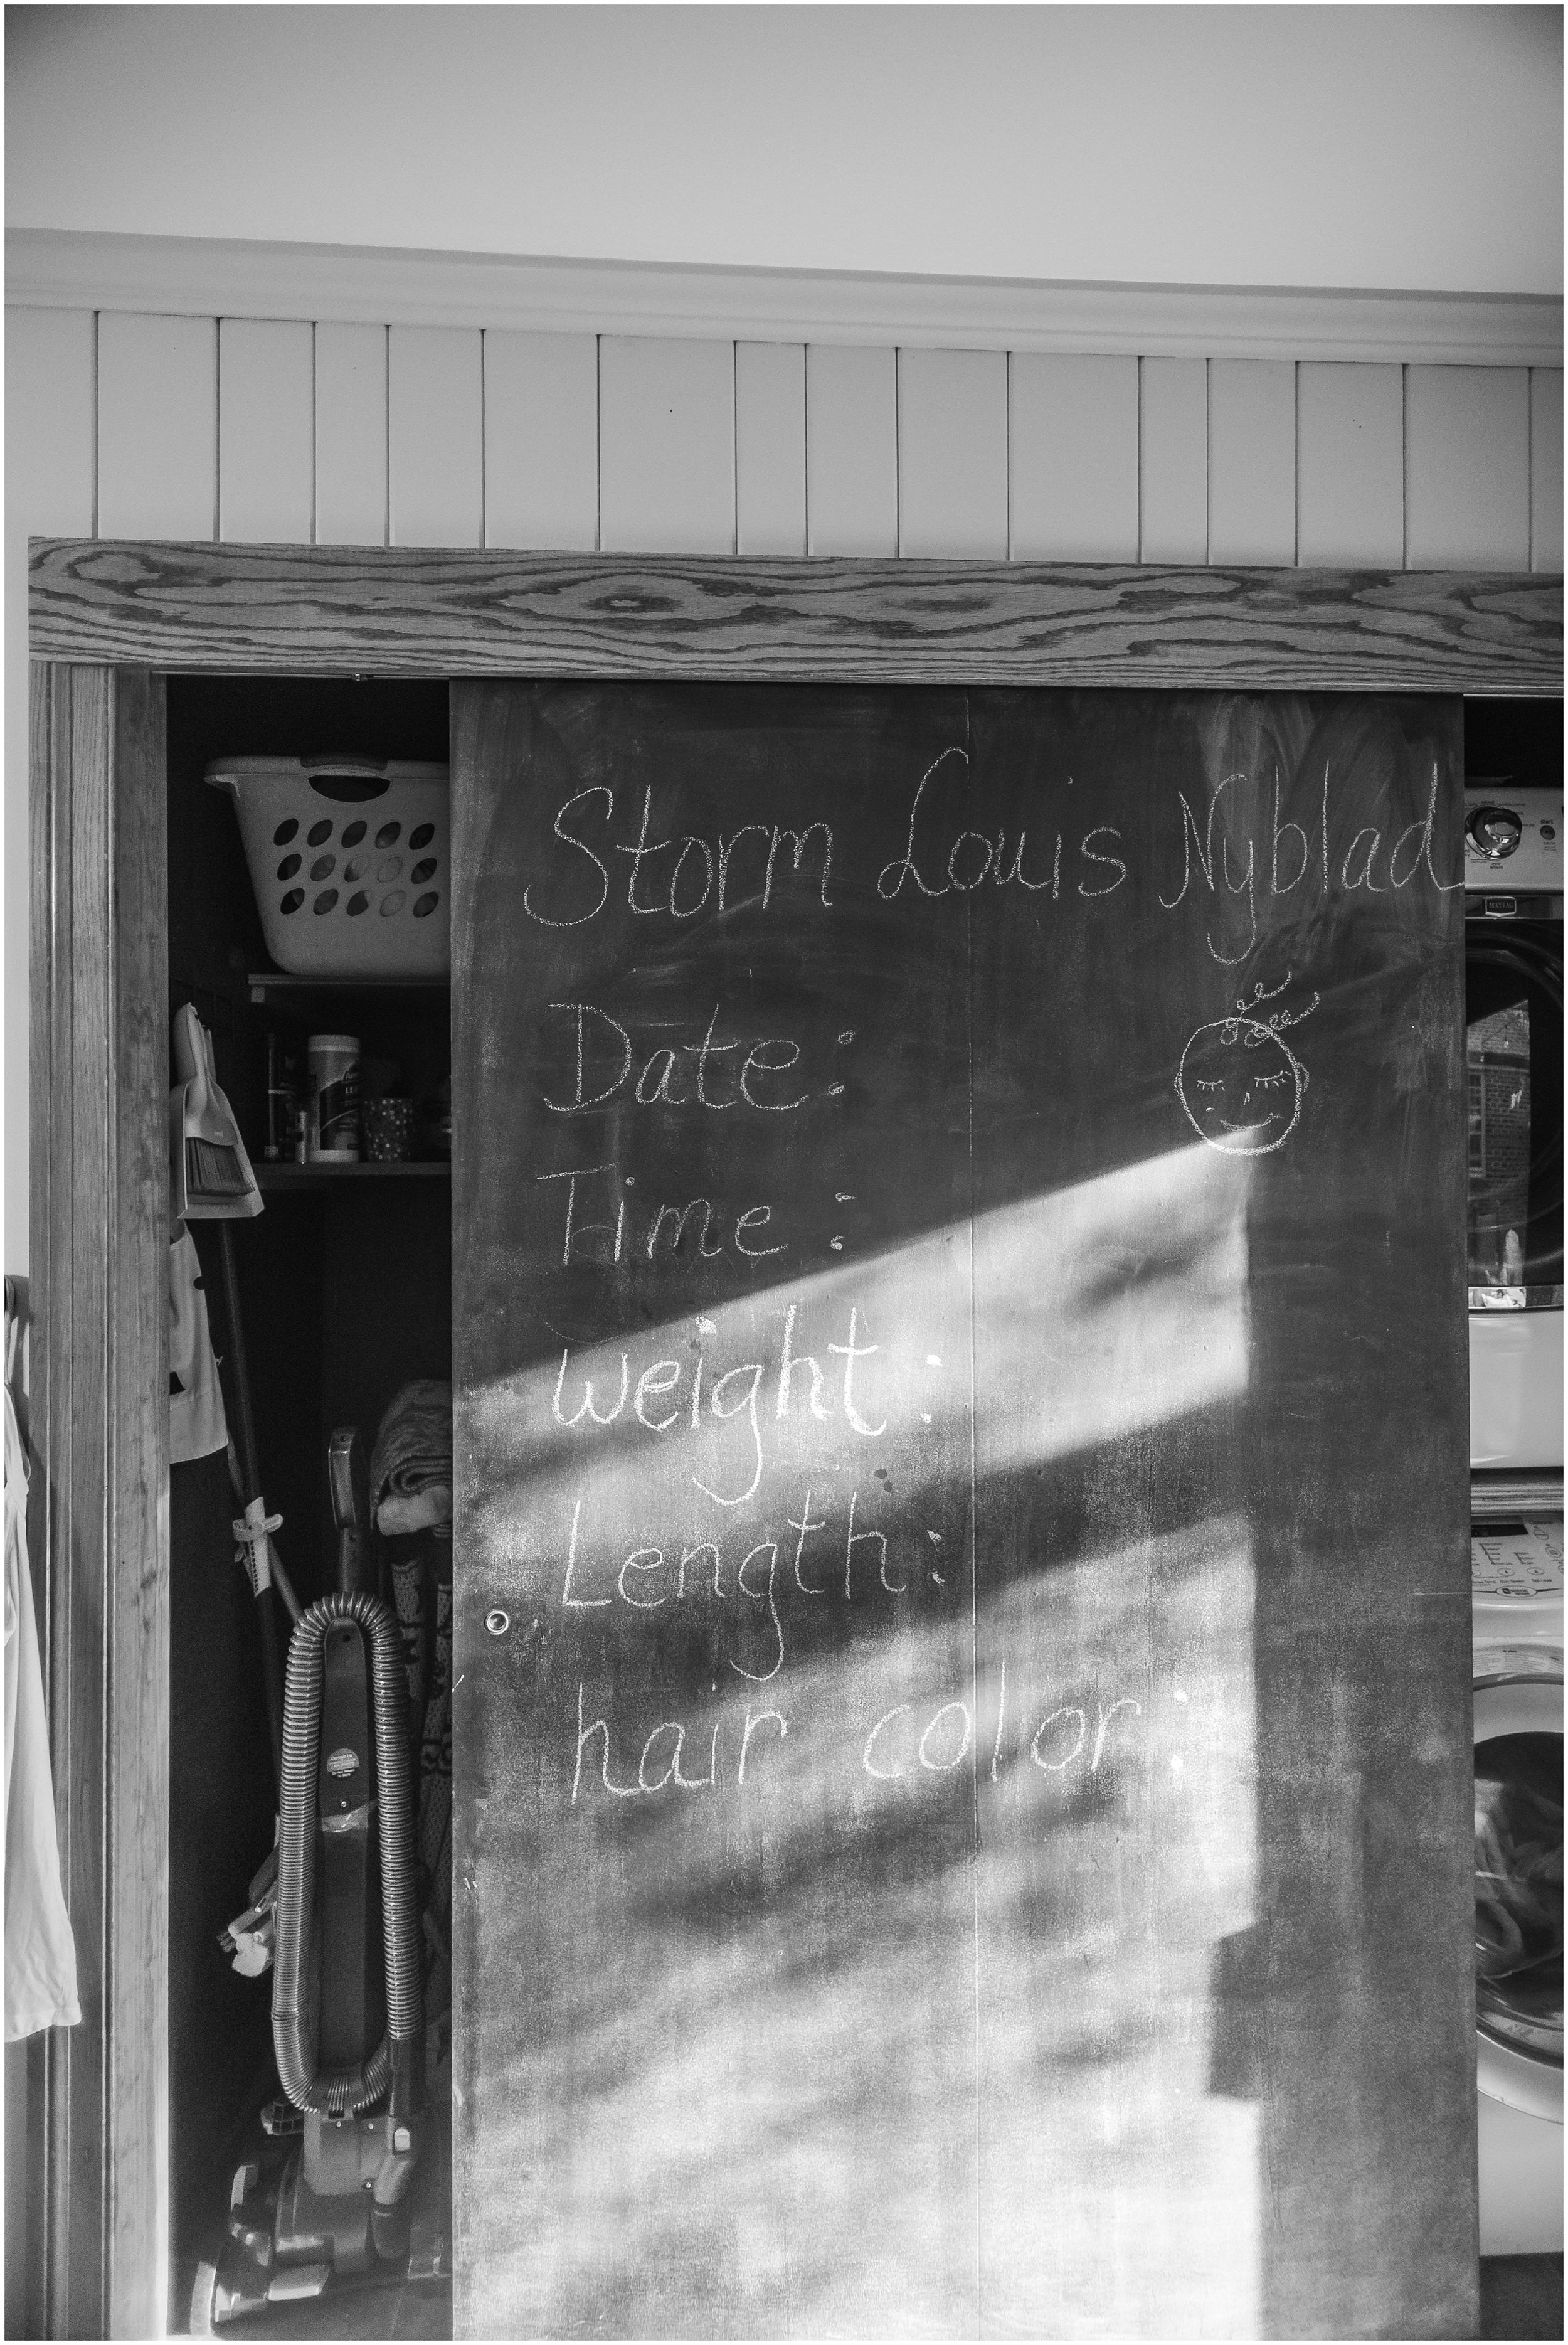 Storm Louis Nyblad
Date:
Time:
weight:
Length:
hair color:
MAYTAG